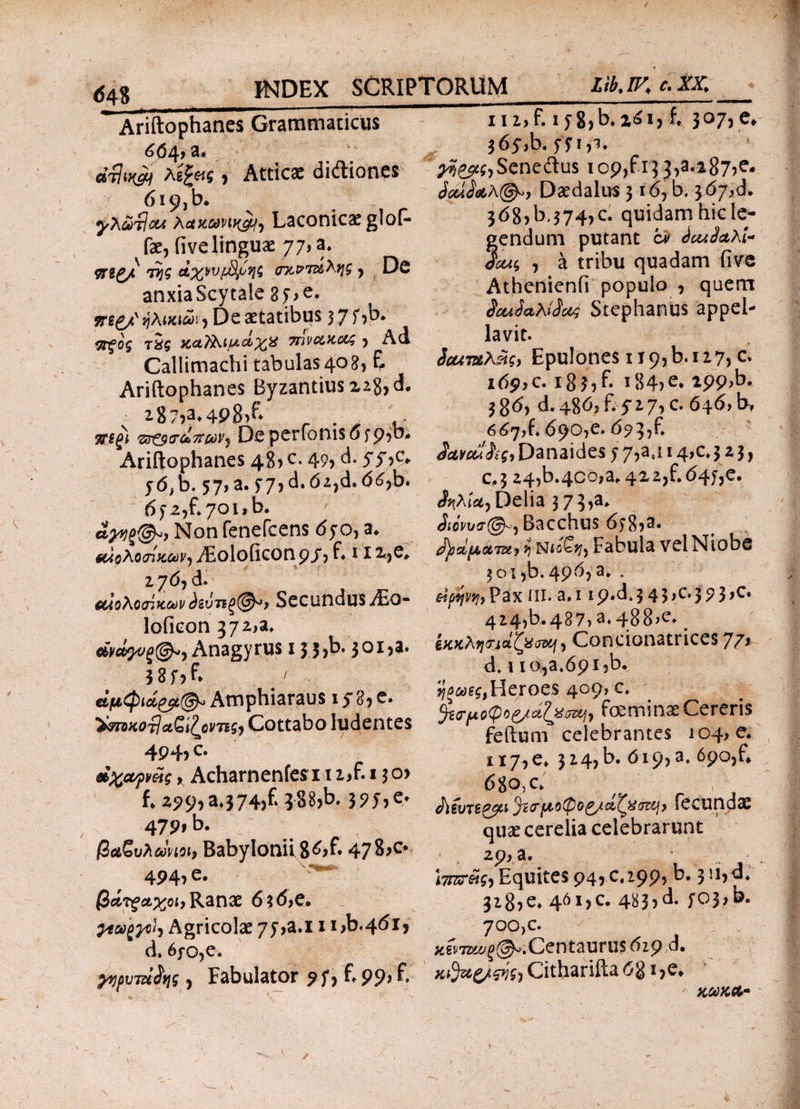 648 INDEX SCRIPTORUM Lib. IV. c. XX.
Ariſtophanes Grammaticus
664, a.
ἀτ]ικαὶ λέξεις, Atticæ dictiones
619, b.
γλῶτ]αι λακωνικαὶ, Laconicæ gloſ-
ſæ, ſive linguæ 77, a.
περὶ τῆς ἀχνυμθύης σκυτάλης, De
anxia Scytale 85, e.
περὶ ἡλικιῶν, De ætatibus 375, b.
πρὸς τὰς καλλιμάχου πίνακας, Ad
Callimachi tabulas 408, f.
Ariſtophanes Byzantius 228, d.
287, a. 498, f.
περὶ προσώπων, De perſonis 659, b.
Ariſtophanes 48, c. 49, d. 55, c.
56, b. 57, a. 57, d. 62, d. 66, b.
652, f. 701, b.
ἀγηρος, Non ſeneſcens 650, a.
αἰολοσίκων, Æoloſicon 95, f. 112, e.
276, d.
αἰολοσίκων δεύτερος, Secundus Æo-
loſicon 372, a.
ἀνάγυρος, Anagyrus 133, b. 301, a.
385, f.
ἀμφιάραος Amphiaraus 158, e.
ἀποκοτ]αβίζοντες, Cottabo ludentes
494, c.
ἀχαρνεῖς, Acharnenſes 112, f. 130,
f. 299, a. 374, f. 388, b. 395, e.
479, b.
βαβυλώνιοι, Babylonii 86, f. 478, c.
494, e.
βάτραχοι, Ranæ 636, e.
γεωργοὶ, Agricolæ 75, a. 111, b. 461,
d. 650, e.
γηρυτάδης, Fabulator 95, f. 99, f.
112, f. 158, b. 261, f. 307, e.
365, b. 551, a.
γῆρας, Senectus 109, f. 133, a. 287, e.
δαίδαλος, Dædalus 316, b. 367, d.
368, b. 374, c. quidam hic le-
gendum putant ἐν δαιδαλί-
δαις, à tribu quadam ſive
Athenienſi populo, quem
δαιδαλίδας Stephanus appel-
lavit.
δαιταλεῖς, Epulones 119, b. 127, c.
169, c. 183, f. 184, e. 299, b.
386, d. 486, f. 527, c. 646, b,
667, f. 690, e. 693, f.
δαναΐδες, Danaides 57, a. 114, c. 323,
c. 324, b. 400, a. 422, f. 645, e.
δηλία, Delia 373, a.
διόνυσος, Bacchus 658, a.
δράματα, ἢ Νιόβη, Fabula vel Niobe
301, b. 496, a.
εἰρήνη, Pax III. a. 119. d. 343, c. 393, c.
424, b. 487, a. 488, e.
ἐκκλησιάζουσαι, Concionatrices 77,
d. 110, a. 691, b.
ἥρωες, Heroes 409, c.
θεσμοφοριάζουσαι, fœminæ Cereris
feſtum celebrantes 104, e.
117, e. 324, b. 619, a. 690, f.
680, c.
δεύτεραι θεσμοφοριάζουσαι, ſecundæ
quæ cerelia celebrarunt
29, a.
ἱππεῖς, Equites 94, c. 299, b. 311, d.
328, e. 461, c. 483, d. 503, b.
700, c.
κένταυρος. Centaurus 629 d.
κιθαριστὴς, Cithariſta 681, e.
κωκα-